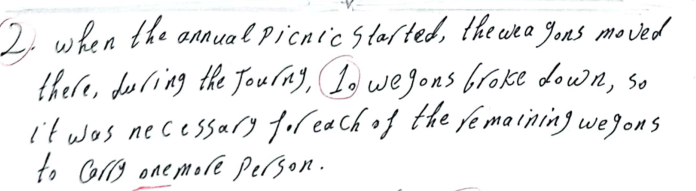 2. when the annual Picnic started, the wea gons moved
there, during the Journy, 10 wegons broke down, so
it was necessary for each of the remaining wegons
to Carry one more Person.